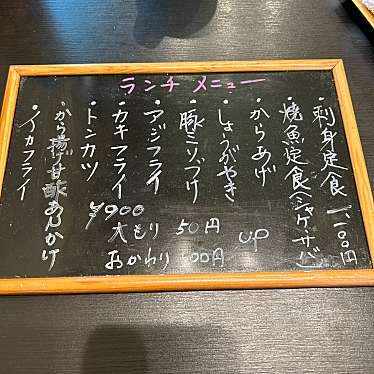 ランチメニュー
・刺身定食 一、一〇〇円
・焼魚定食(シャケ・サバ)
・からあげ
・しょうがやき
・豚キムチ
・アジフライ
・カキフライ
・トンカツ
・から揚げ甘酢あんかけ
・イカフライ
¥900
大もり 50円 up
おかわり 100円